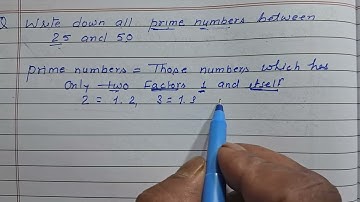 Q Write down all prime numbers between
25 and 50
prime numbers = Those numbers which has
only two Factors 1 and itself
2 = 1.2, 3 = 1.3